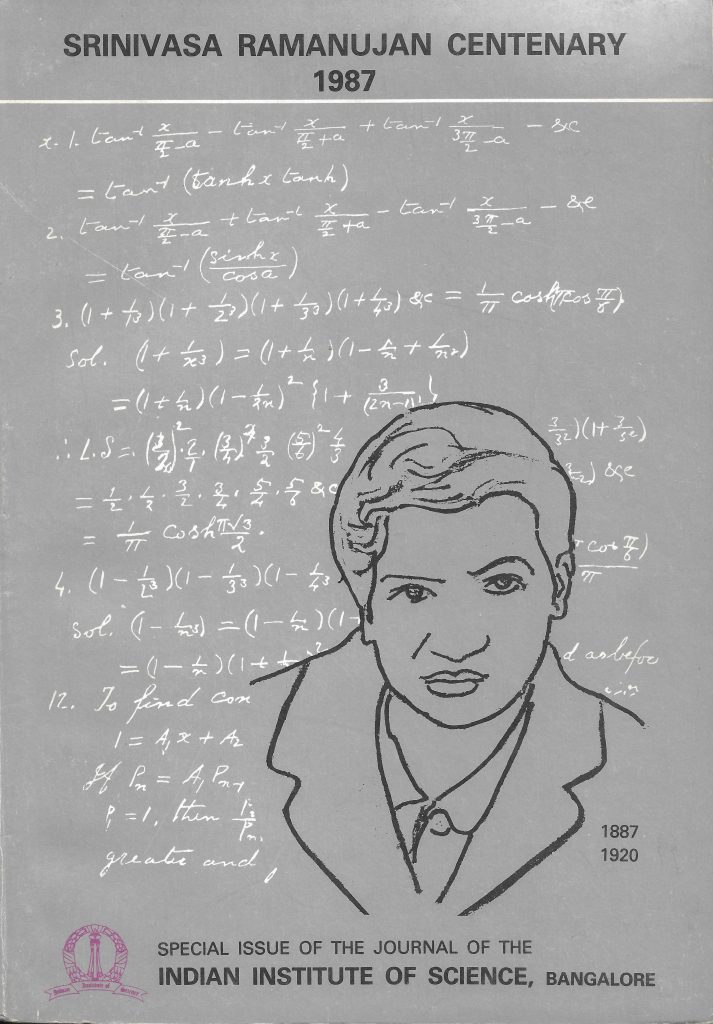 SRINIVASA RAMANUJAN CENTENARY
1987
x. 1. tan⁻¹ x/(π/2 - a) - tan⁻¹ x/(π/2 + a) + tan⁻¹ x/(3π/2 - a) - &c
= tan⁻¹ (tanhx tanh)
2. tan⁻¹ x/(π/2 - a) + tan⁻¹ x/(π/2 + a) - tan⁻¹ x/(3π/2 - a) - &c
= tan⁻¹ (sinhx/cosa)
3. (1 + 1/1³)(1 + 1/2³)(1 + 1/3³)(1 + 1/4³) &c = 1/π cosh(π cos π/6)
Sol. (1 + 1/n³) = (1 + 1/n)(1 - 1/n + 1/n²)
= (1 + 1/n)(1 - 1/2n)² {1 + 3/(2n-1)²}
∴ L.S =
= 1/2 · 1/2 · 3/2 · 3/4 · 5/4 · 5/6 &c
&c
= 1/π cosh π√3/2.
4. (1 - 1/2³)(1 - 1/3³)(1 - 1/4³)
Sol. (1 - 1/n³) = (1 - 1/n)(1+
= (1 - 1/n)(1 + 1/
d as befoe
12. To find con
1 = A₁x + A₂
If Pₙ = A₁Pₙ₋₁
P₁ = 1, then
greater and
1887
1920
SPECIAL ISSUE OF THE JOURNAL OF THE
INDIAN INSTITUTE OF SCIENCE, BANGALORE
Indian Institute of Science